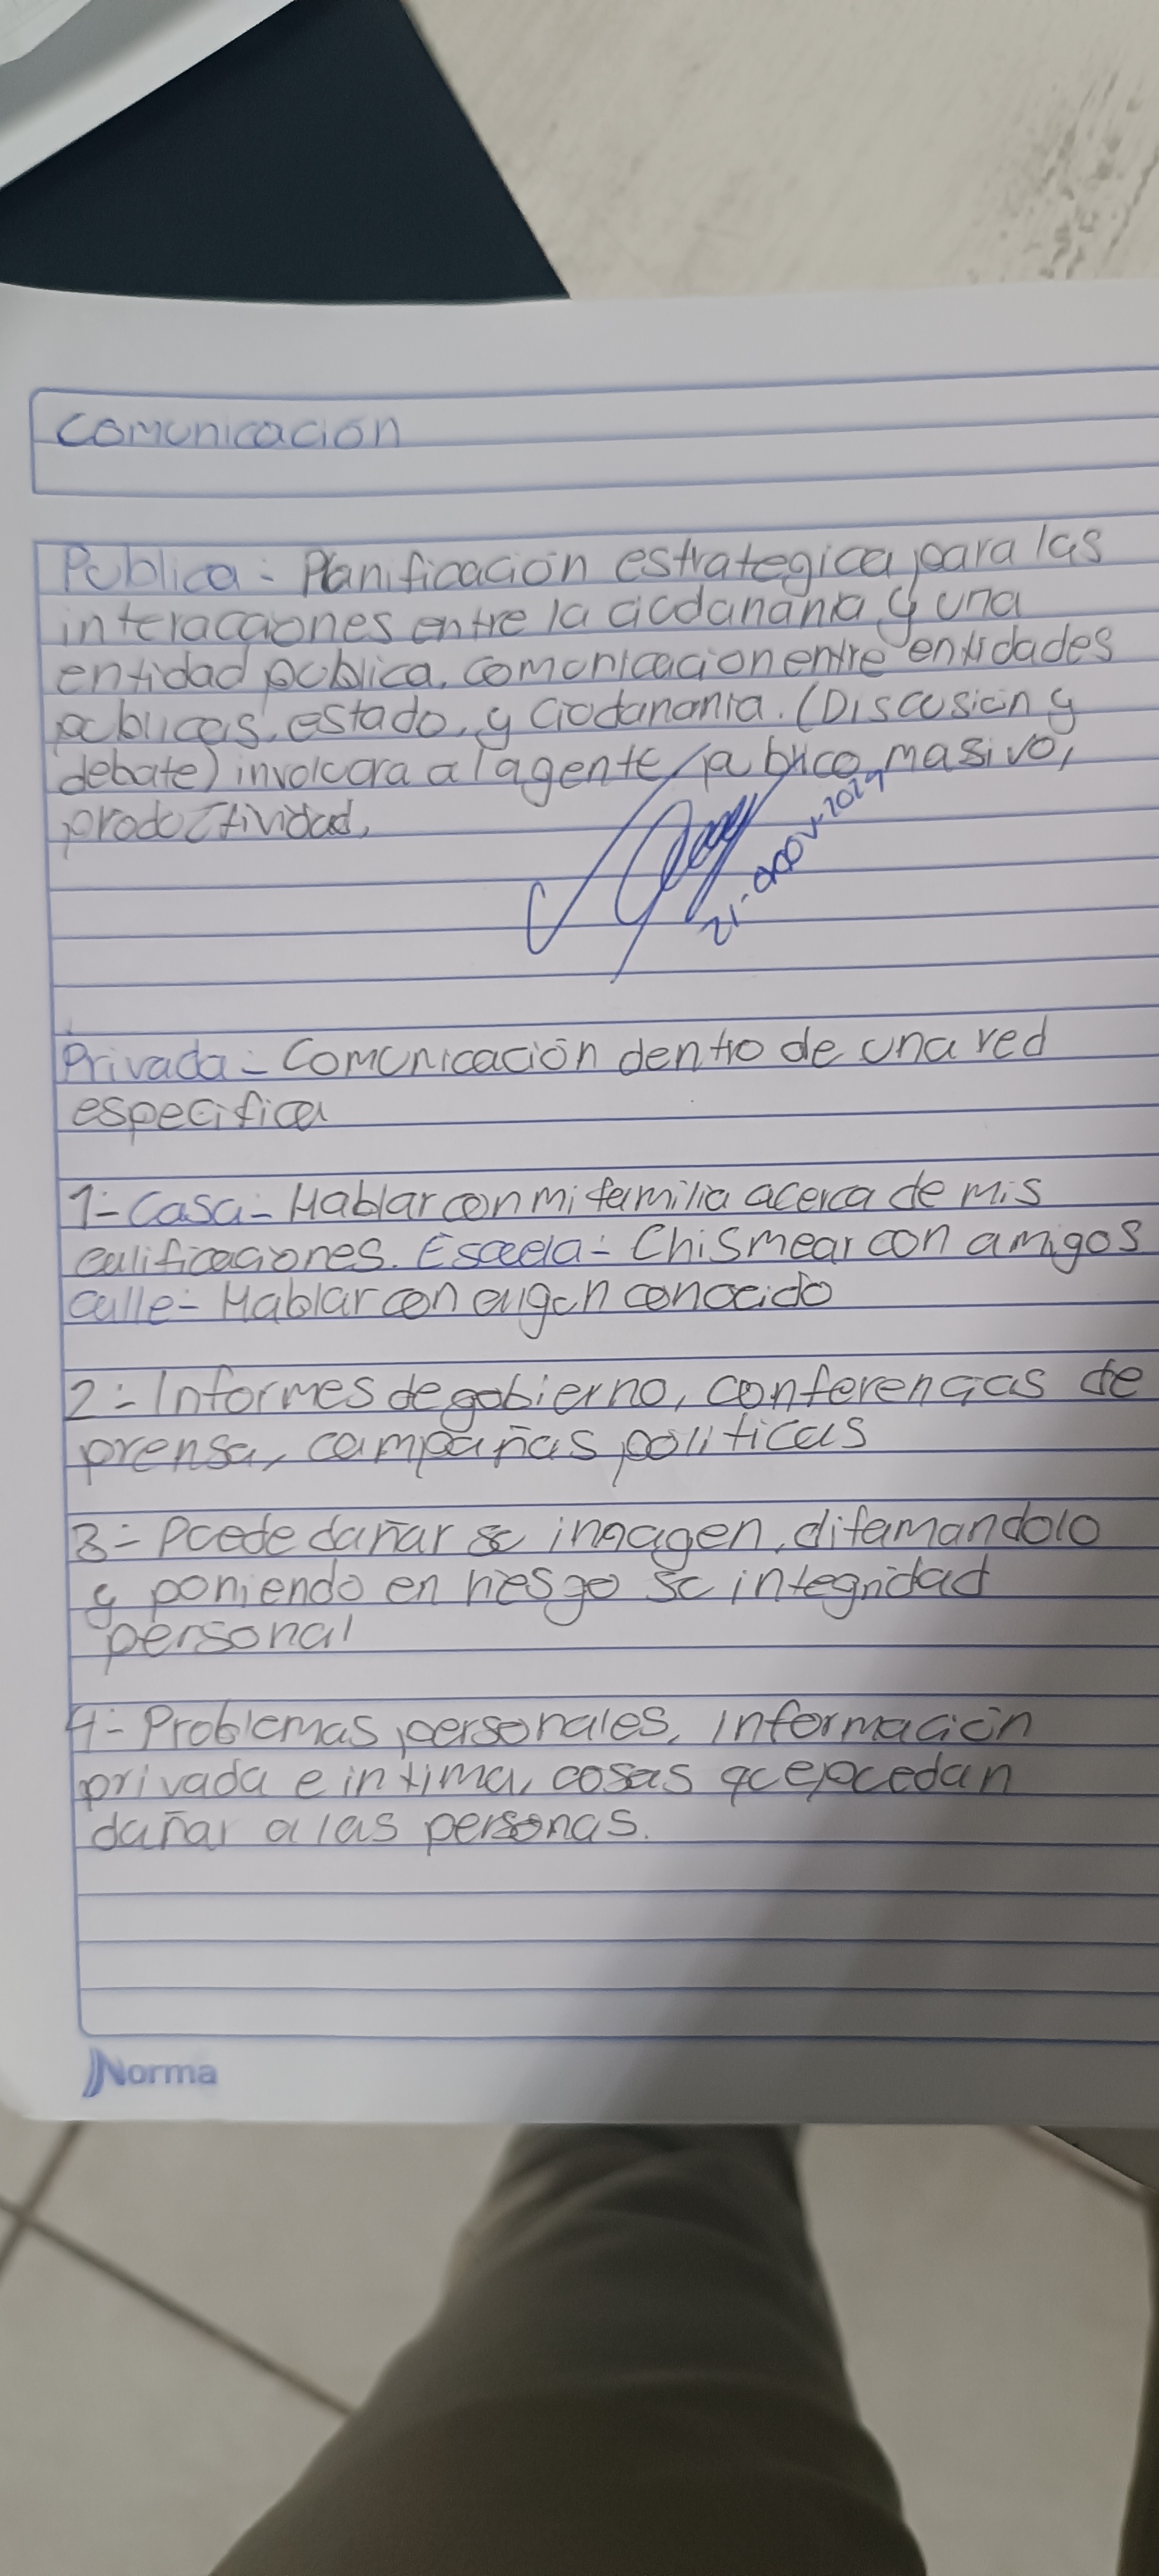 Comunicación
Pública - Planificación estrategica para las
interacciones entre la ciudanania y una
entidad publica, comunicacion entre entidades
publicas, estado, y ciudanania. (Discusión y
debate) involucra a la gente, publico masivo,
productividad.
Privada - Comunicación dentro de una red
especifica
1- Casa - Hablar con mi familia acerca de mis
calificaciones. Escuela - Chismear con amigos
calle - Hablar con conocido
2 - Informes de gobierno, conferencias de
prensa, campañas politicas
3 - Puede dañar su imagen, difamandolo
y poniendo en riesgo su integridad
personal
4 - Problemas personales, información
privada e intima, cosas que puedan
dañar a las personas.
Norma